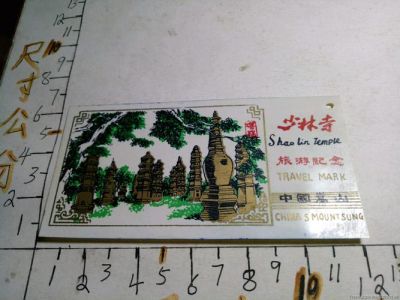 少林寺
Shao lin Temple
旅游紀念
TRAVEL MARK
中國嵩山
CHINA S MOUNT SUNG
尺寸公分
13
12
11
10
9
8
7
6
5
4
3
2
1
1 2 3 4 5 6 7 8 9 10 11 12 13